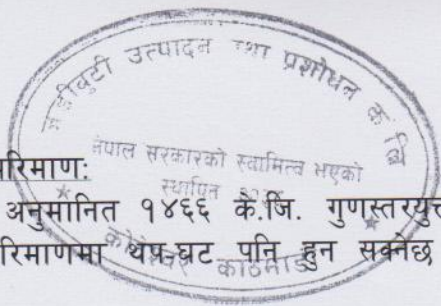 जडीबुटी उत्पादन तथा प्रशोधन कं लि
नेपाल सरकारको स्वामित्व भएको
स्थापित
कोटेश्वर काठमाडौं
परिमाण:
अनुमानित १४६६ के.जि. गुणस्तरयुक्त
परिमाणमा थप-घट पनि हुन सक्नेछ